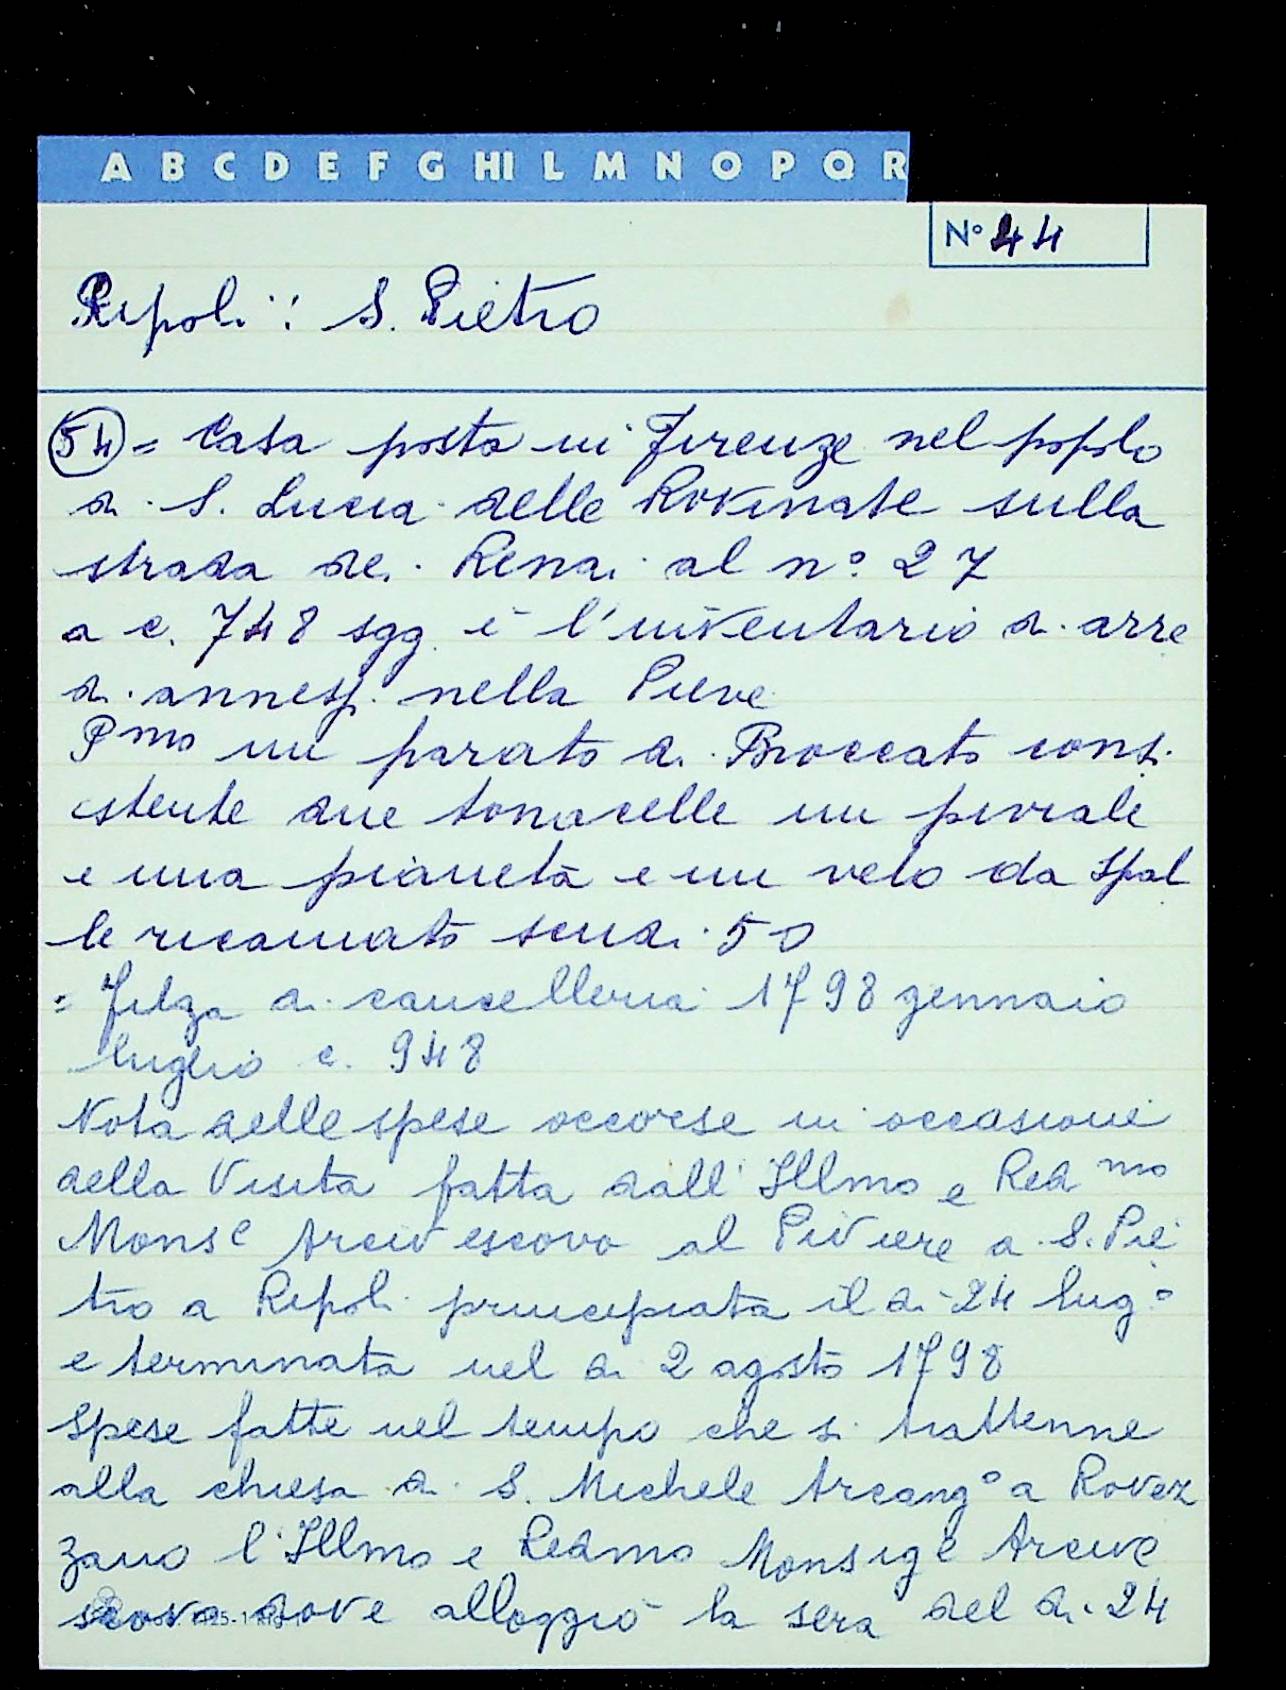 A B C D E F G HI L M N O P Q R
N° 44
Ripoli: S. Pietro
54 = Casa posta in Firenze nel popolo
di S. Lucia delle Rovinate sulla
strada dei Renai al n° 27
a c. 748 sgg. è l'inventario di arre
di annessi nella Pieve
Pmo un parato di Broccato consi
stente due tonacelle un piviale
e una pianeta e un velo da spal
le ricamato scudi 50
= Filza di cancelleria 1798 gennaio
luglio c. 948
Nota delle spese occorse in occasione
della Visita fatta dall'Illmo e Redmo
Monse Arcivescovo al Piviere a S. Pie
tro a Ripoli principiata il di 24 lug°
e terminata nel di 2 agosto 1798
Spese fatte nel tempo che si trattenne
alla chiesa di S. Michele Arcang° a Rovez
zano l'Illmo e Redmo Monsige Arcive
scovo dove alloggiò la sera del di 24